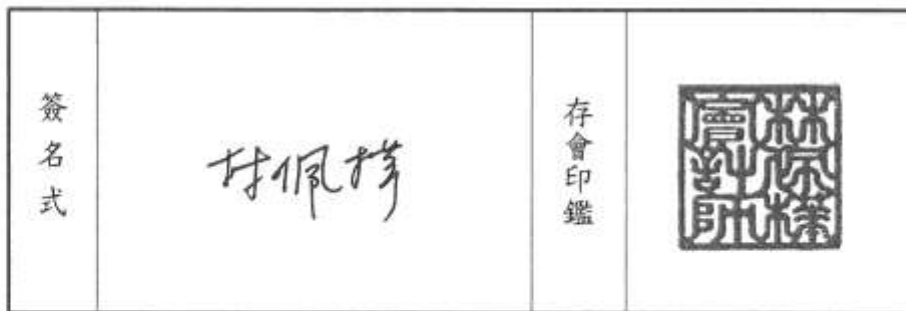 簽名式
林佩樺
存會印鑑
林佩樺
會計師